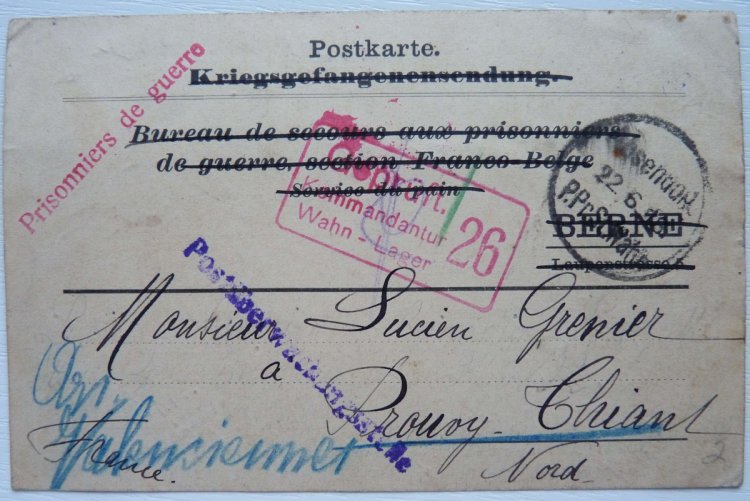 Postkarte.
Kriegsgefangenensendung.
Prisonniers de guerre
Bureau de secours aux prisonniers
de guerre, section Franco-Belge
Service du pain
Geprüft.
Kommandantur
Wahn - Lager
26
22. 6.
BERNE
Laupenstrasse
Postüberwachungsstelle
Monsieur Lucien Grenier
à Prouvy-Thiant
Arr.
Valenciennes
Nord.
France.
2